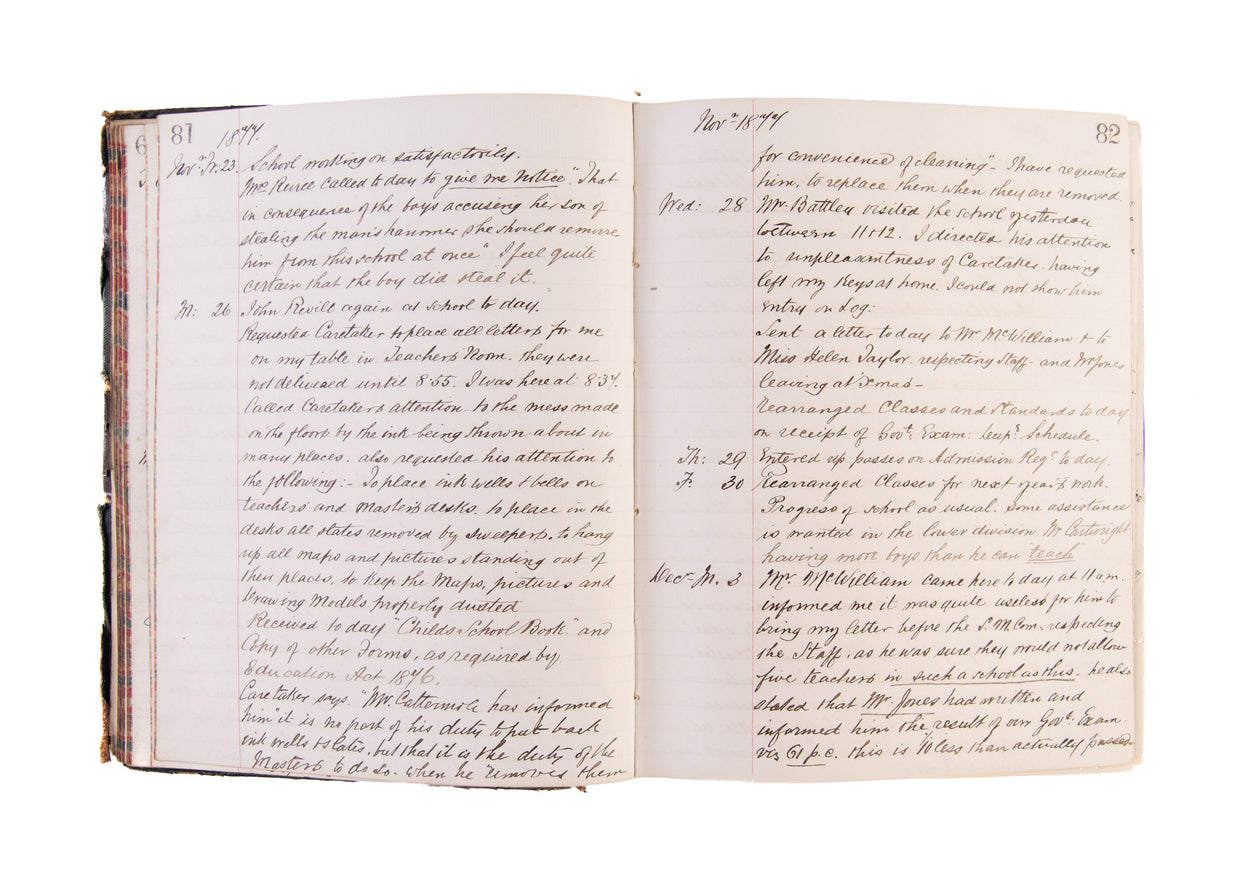 81
1877.
Novr Fr: 23 School working on satisfactorily.
Mrs Revill called to day to give me notice "That
in consequence of the boys accusing her son of
stealing the man's hammer she should remove
him from this school at once" I feel quite
certain that the boy did steal it.
M: 26 John Revill again at school to day.
Requested Caretaker to place all letters for me
on my table in Teachers Room. They were
not delivered until 8.55. I was here at 8.37.
Called Caretakers attention to the mess made
on the floors by the ink being thrown about in
many places. also requested his attention to
the following:- To place ink wells & bells on
teachers and master's desks. to place in the
desks all slates removed by sweepers. to hang
up all maps and pictures standing out of
their places, to keep the Maps, pictures and
Drawing Models properly dusted
Received to day "Childs School Book" and
Copy of other Forms, as required by
Education Act 1876.
Caretaker says "Mr. Cattermole has informed
him" it is no part of his duty to put back
ink wells & slates, but that it is the duty of the
Masters to do so. when he "removes them
82
Novr 1877
for convenience of cleaning" - I have requested
him, to replace them when they are removed.
Wed: 28 Mr. Battley visited the school yesterday
between 11 & 12. I directed his attention
to unpleasantness of Caretaker. having
left my keys at home. I could not show him
entry on Log:
Sent a letter to day to Mr McWilliam & to
Miss Helen Taylor, respecting Staff and Mr Jones
leaving at Xmas -
Rearranged Classes and Standards to day
on receipt of Govt: Exam: Schedule.
Th: 29 Entered up passes on Admission Regr to day.
F: 30 Rearranged Classes for next year's work.
Progress of school as usual. Some assistance
is wanted in the lower division Mr Cartwright
having more boys than he can teach
Decr M. 3 Mr. McWilliam came here to day at 11 am.
informed me it was quite useless for him to
bring my letter before the S. M. Com. respecting
the Staff, as he was sure they would not allow
five teachers in such a school as this. he also
stated that Mr. Jones had written and
informed him the result of our Govt. Exam.
viz 61 p.c. this is less than actually passed